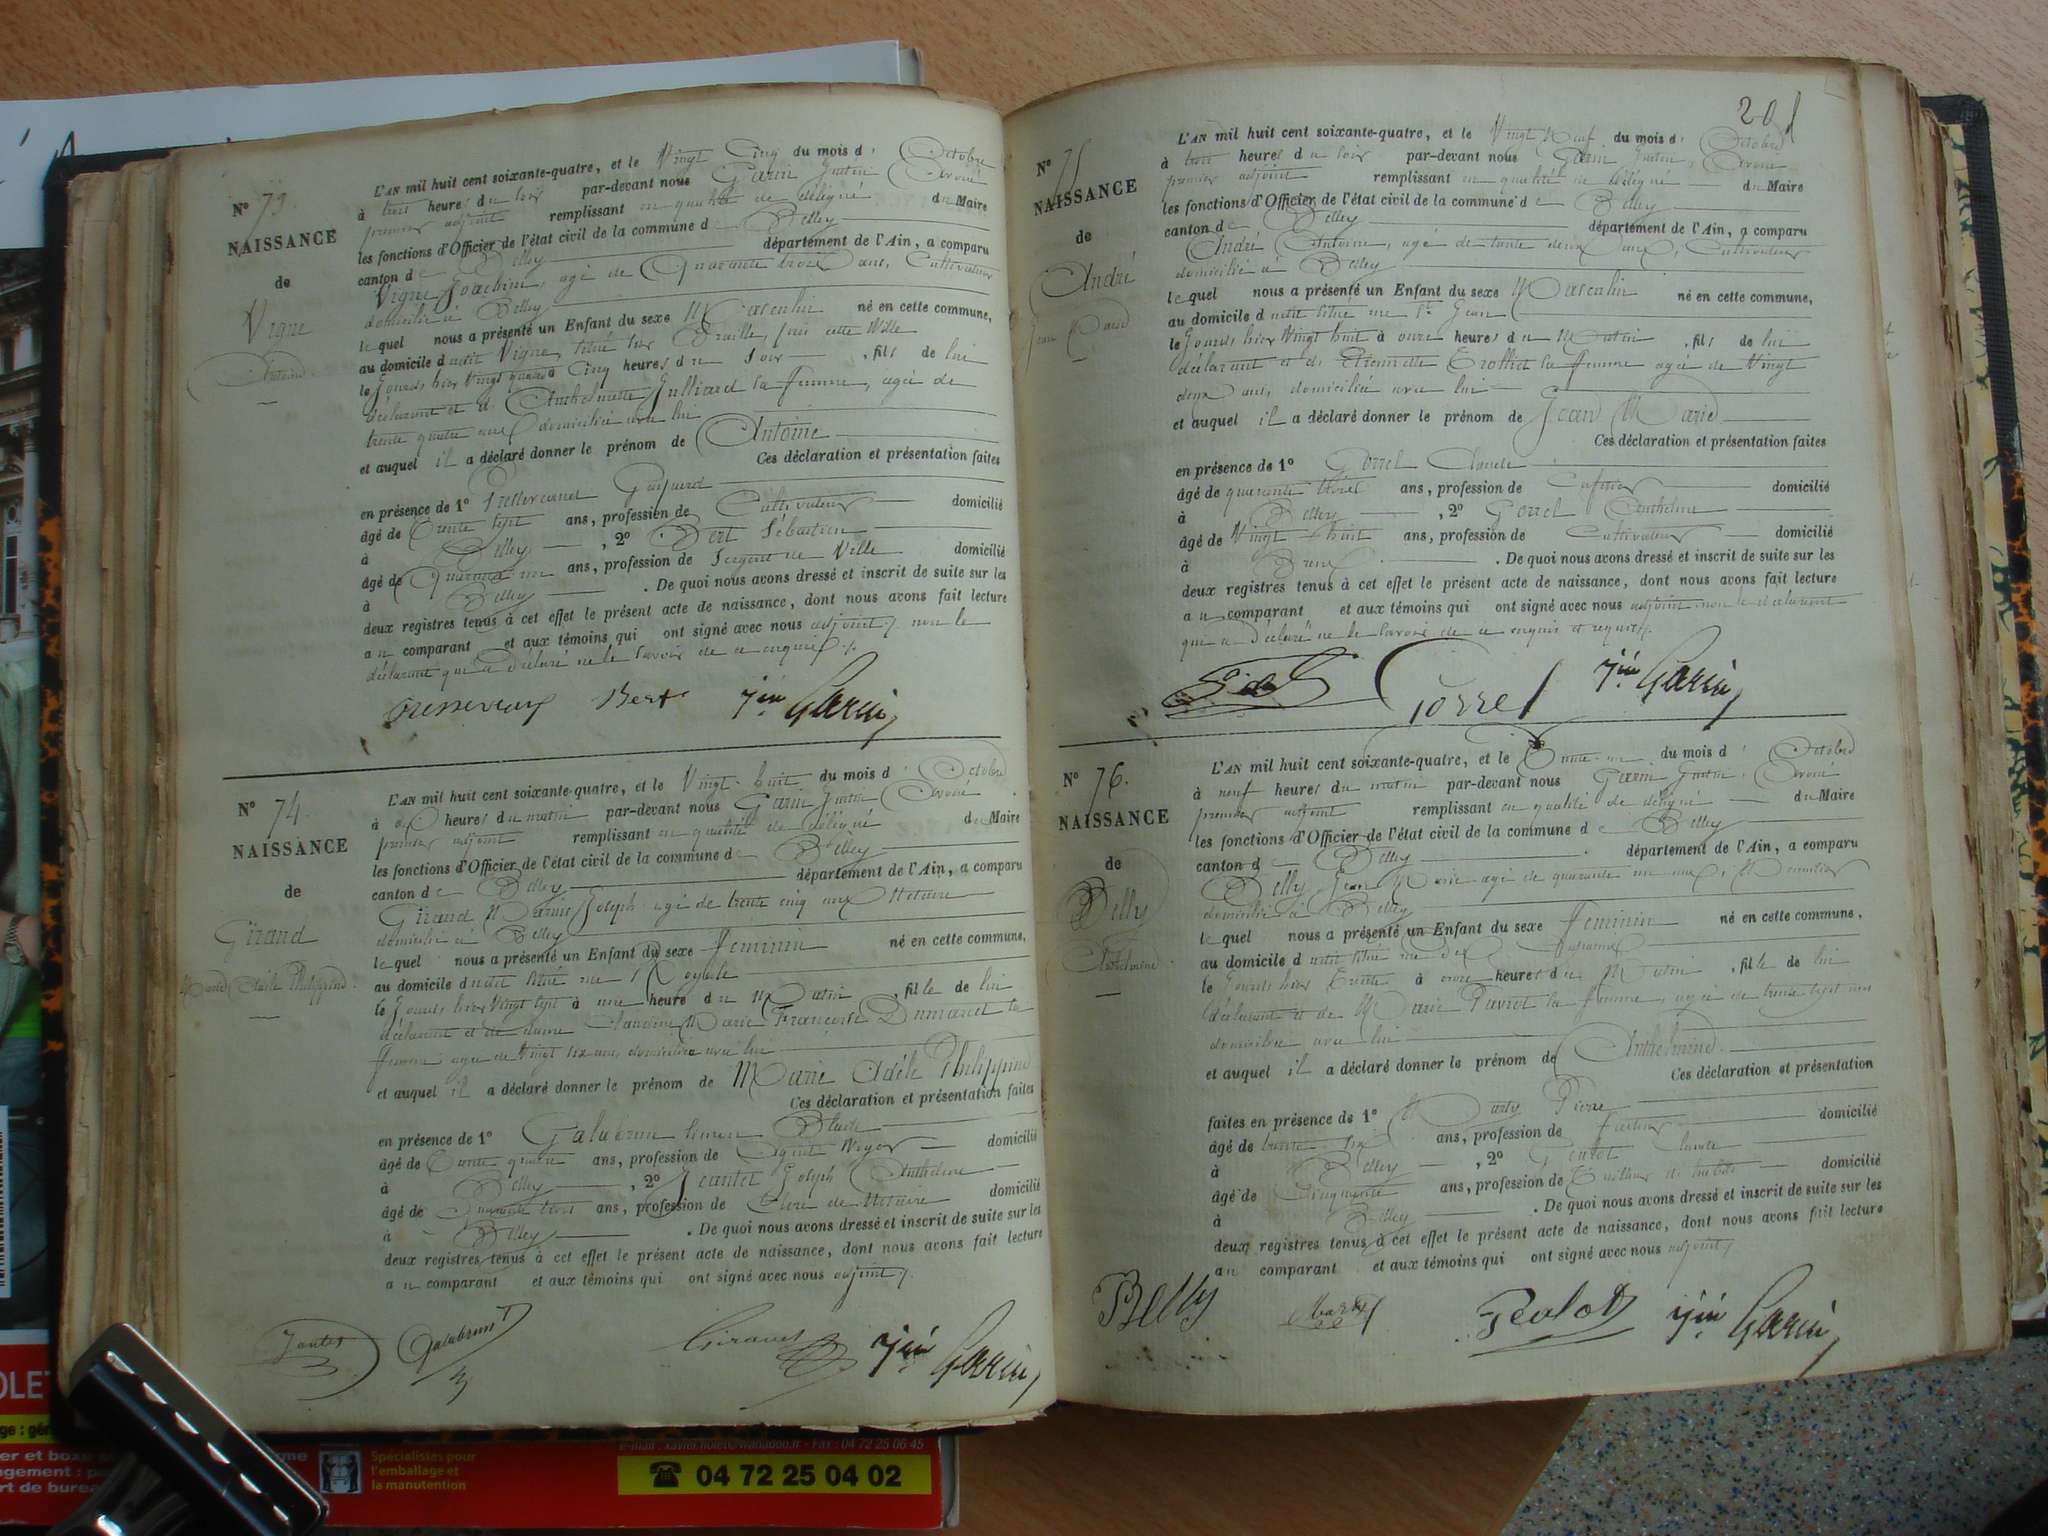 N° 73.
NAISSANCE
de
Vigne
Antoine
L'AN mil huit cent soixante-quatre, et le Vingt Cinq du mois d' Octobre
à trois heures du soir par-devant nous Garin Justin Avoué
premier adjoint remplissant en qualité de délégué du Maire
les fonctions d'Officier de l'état civil de la commune de Belley
canton de Belley département de l'Ain, a comparu
Vigne Joachim, agé de Quarante trois ans, Cultivateur
domicilié à Belley
lequel nous a présenté un Enfant du sexe Masculin né en cette commune,
au domicile dudit Vigne, situé sur Braille, cette Ville
le jour d'hier Vingt quatre à Cinq heures du Soir, fils de lui
déclarant et d' Anthelmette Julliard sa femme, agée de
trente quatre ans domiciliée avec lui
et auquel il a déclaré donner le prénom de Antoine
Ces déclaration et présentation faites
en présence de 1° Gaspard
âgé de Trente sept ans, profession de Cultivateur domicilié
à Belley, 2° Bert Sébastien
âgé de Quarante un ans, profession de Sergent de Ville domicilié
à Belley. De quoi nous avons dressé et inscrit de suite sur les
deux registres tenus à cet effet le présent acte de naissance, dont nous avons fait lecture
au comparant et aux témoins qui ont signé avec nous adjoint, non le
déclarant qui a déclaré ne le savoir de ce enquis.
Bert Jin Garin
N° 74.
NAISSANCE
de
Giraud
Marie Adèle Philippine
L'AN mil huit cent soixante-quatre, et le Vingt huit du mois d' Octobre
à heures du matin par-devant nous Garin Justin Avoué
premier adjoint remplissant en qualité de délégué du Maire
les fonctions d'Officier de l'état civil de la commune de Belley
canton de Belley département de l'Ain, a comparu
Giraud Marie Joseph agé de trente cinq ans Notaire
domicilié à Belley
lequel nous a présenté un Enfant du sexe Féminin né en cette commune,
au domicile dudit situé rue
le jour d'hier Vingt sept à une heure du Matin, fille de lui
déclarant et de dame Claudine Marie Françoise Dumarest sa
femme agée de Vingt six ans, domiciliée avec lui
et auquel il a déclaré donner le prénom de Marie Adèle Philippine
Ces déclaration et présentation faites
en présence de 1° Galabrun
âgé de Trente quatre ans, profession de Agent Voyer domicilié
à Belley, 2° Jantet Joseph Anthelme
âgé de Quarante trois ans, profession de Clerc de Notaire domicilié
à Belley. De quoi nous avons dressé et inscrit de suite sur les
deux registres tenus à cet effet le présent acte de naissance, dont nous avons fait lecture
au comparant et aux témoins qui ont signé avec nous adjoint.
Jantet Galabrun Giraud Jin Garin
201
N° 75
NAISSANCE
de
André
Jean Marie
L'AN mil huit cent soixante-quatre, et le Vingt Neuf du mois d' Octobre
à trois heures du soir par-devant nous Garin Justin, Avoué
premier adjoint remplissant en qualité de délégué du Maire
les fonctions d'Officier de l'état civil de la commune de Belley
canton de Belley département de l'Ain, a comparu
André Antoine, agé de trente deux ans, Cultivateur
domicilié à Belley
lequel nous a présenté un Enfant du sexe Masculin né en cette commune,
au domicile dudit situé rue St Jean
le jour d'hier Vingt huit à onze heures du Matin, fils de lui
déclarant et d' Etiennette Trolliet sa femme agée de Vingt
deux ans, domiciliée avec lui
et auquel il a déclaré donner le prénom de Jean Marie
Ces déclaration et présentation faites
en présence de 1° Gorrel Claude
âgé de quarante trois ans, profession de Cafetier domicilié
à Belley, 2° Gorrel Anthelme
âgé de Vingt huit ans, profession de Cultivateur domicilié
à. De quoi nous avons dressé et inscrit de suite sur les
deux registres tenus à cet effet le présent acte de naissance, dont nous avons fait lecture
au comparant et aux témoins qui ont signé avec nous adjoint, non le déclarant
qui a déclaré ne le savoir de ce enquis et requis.
Gorrel Jin Garin
N° 76.
NAISSANCE
de
Belly
Anthelmine
L'AN mil huit cent soixante-quatre, et le Trente un du mois d' Octobre
à neuf heures du matin par-devant nous Garin Justin, Avoué
premier adjoint remplissant en qualité de délégué du Maire
les fonctions d'Officier de l'état civil de la commune de Belley
canton de Belley département de l'Ain, a comparu
Belly Jean Marie agé de quarante un ans, Menuisier
domicilié à Belley
lequel nous a présenté un Enfant du sexe Féminin né en cette commune,
au domicile dudit situé rue des
le jour d'hier Trente à onze heures du Matin, fille de lui
déclarant et de Marie Pavret sa femme, agée de trente sept ans
domiciliée avec lui
et auquel il a déclaré donner le prénom de Anthelmine
Ces déclaration et présentation
faites en présence de 1° Marty Pierre
âgé de trente six ans, profession de Facteur domicilié
à Belley, 2° Génlot Claude
âgé de Cinquante ans, profession de Tailleur d'habits domicilié
à Belley. De quoi nous avons dressé et inscrit de suite sur les
deux registres tenus à cet effet le présent acte de naissance, dont nous avons fait lecture
au comparant et aux témoins qui ont signé avec nous adjoint,
Belly Marty Jin Garin
Spécialistes pour
l'emballage et
la manutention
04 72 25 04 02